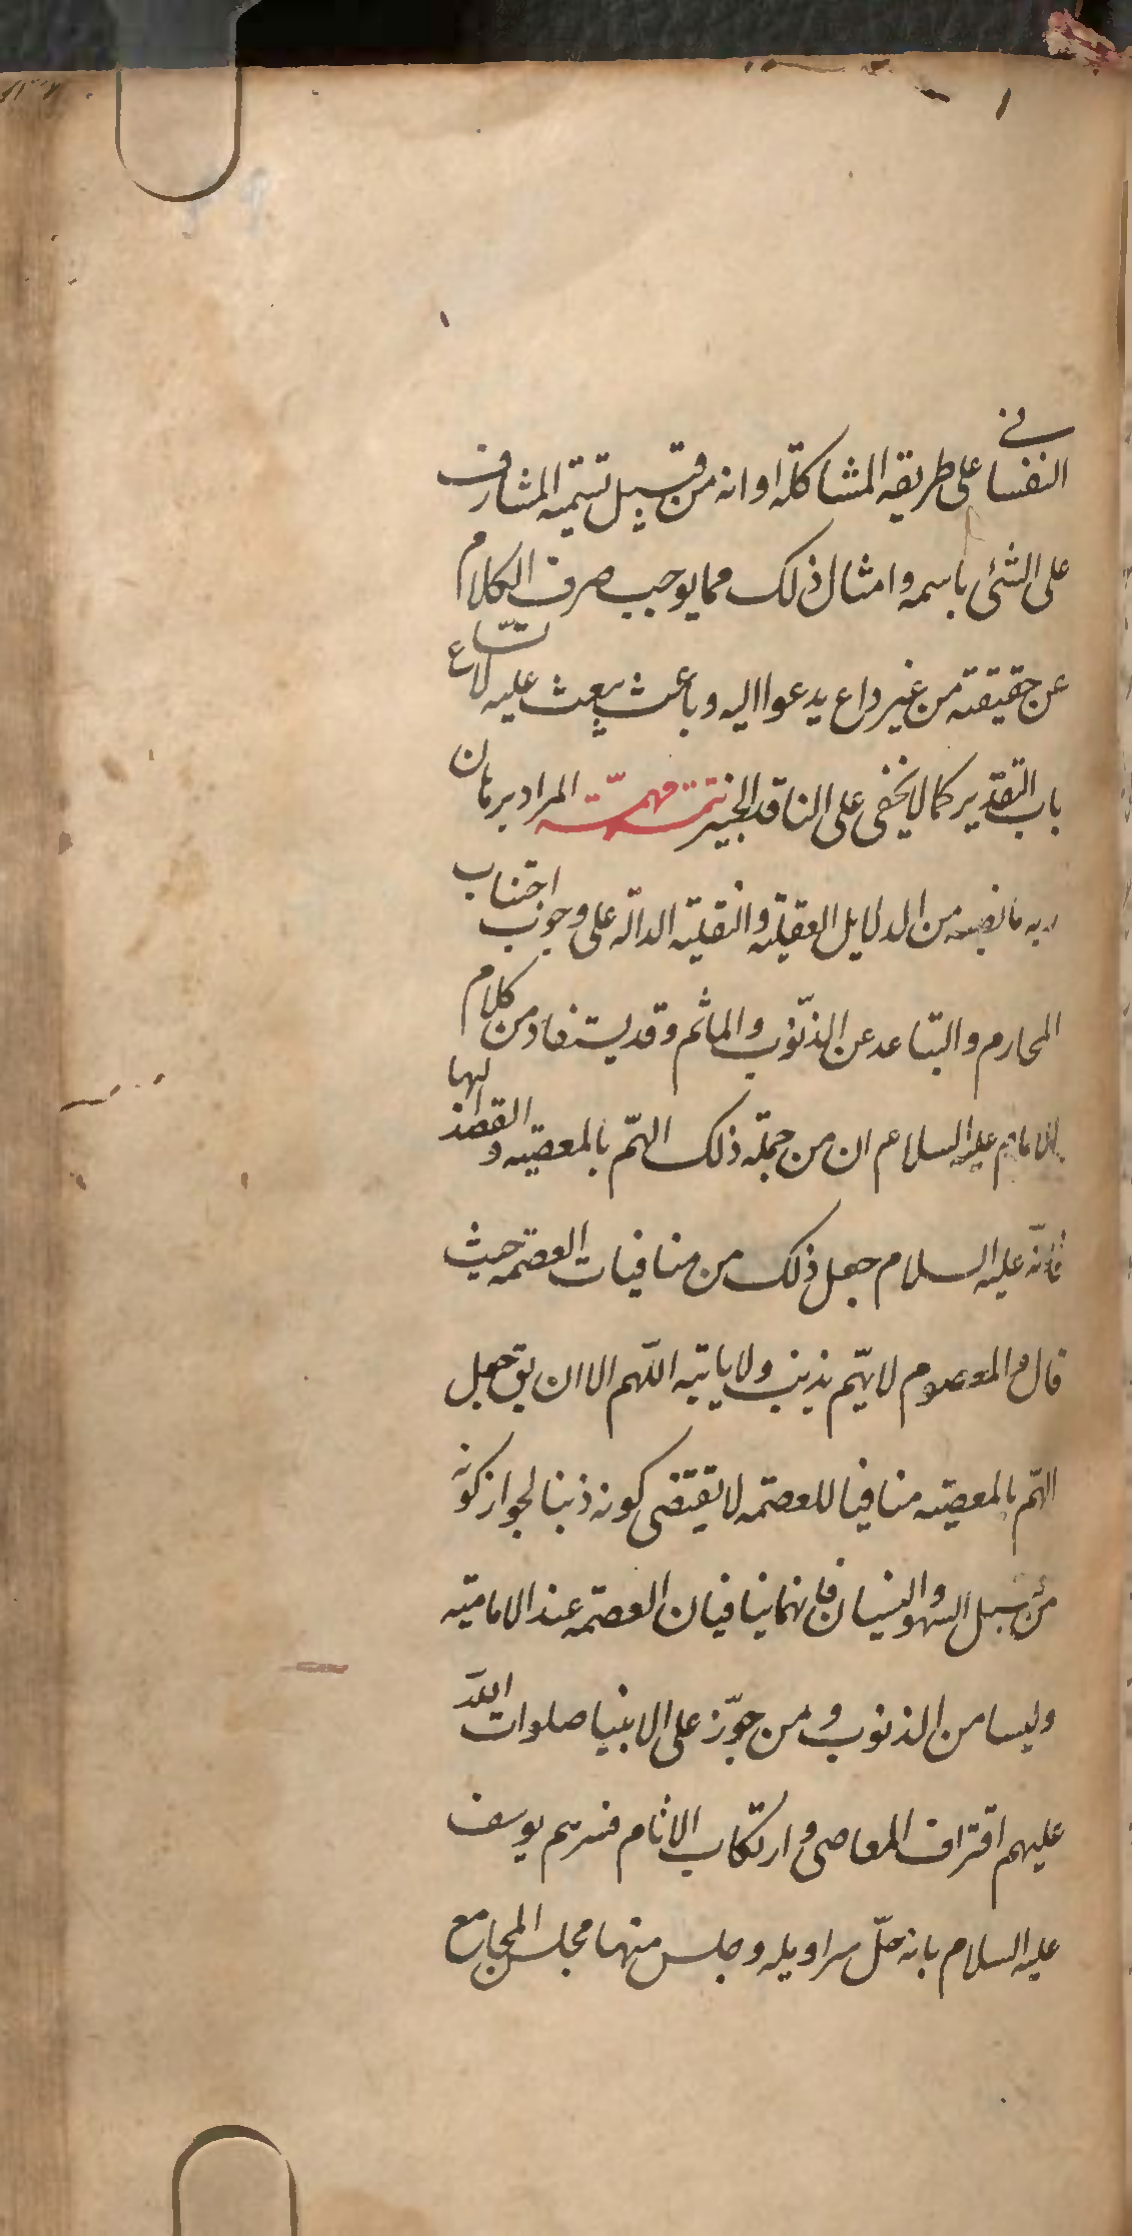 النفسانى على طريقه المشاكلة او انه من قبيل تسميه المشارف
على الشئ باسمه وامثال ذلك مما يوجب صرف الكلام
عن حقيقته من غير داع يدعوا اليه وباعث يبعث عليه لاتساع
باب التقدير كما لا يخفى على الناقد الخبير تتمة مهمة المراد ببرهان
ربه ما نصبه من الدلايل العقلية والنقلية الدالة على وجوب اجتناب
المحارم والتباعد عن الذنوب والمآثم وقد يستفاد من كلام
الامام عليه السلام ان من جملة ذلك الهمّ بالمعصيه والقصد اليها
فانّه عليه السلام جعل ذلك من منافيات العصمه حيث
قال والمعصوم لا يهمّ بذنب ولا ياتيه اللّهم الا ان يق جعل
الهمّ بالمعصيه منافيا للعصمه لا يقتضى كونه ذنبا لجواز كونه
من قبيل السهو والنسيان فانهما ينافيان العصمه عند الاماميه
وليسا من الذنوب ومن جوّز على الانبيا صلوات اللّه
عليهم اقتراف المعاصى وارتكاب الاثام فسر هم يوسف
عليه السلام بانه حلّ سراويله وجلس منها مجلس المجامع